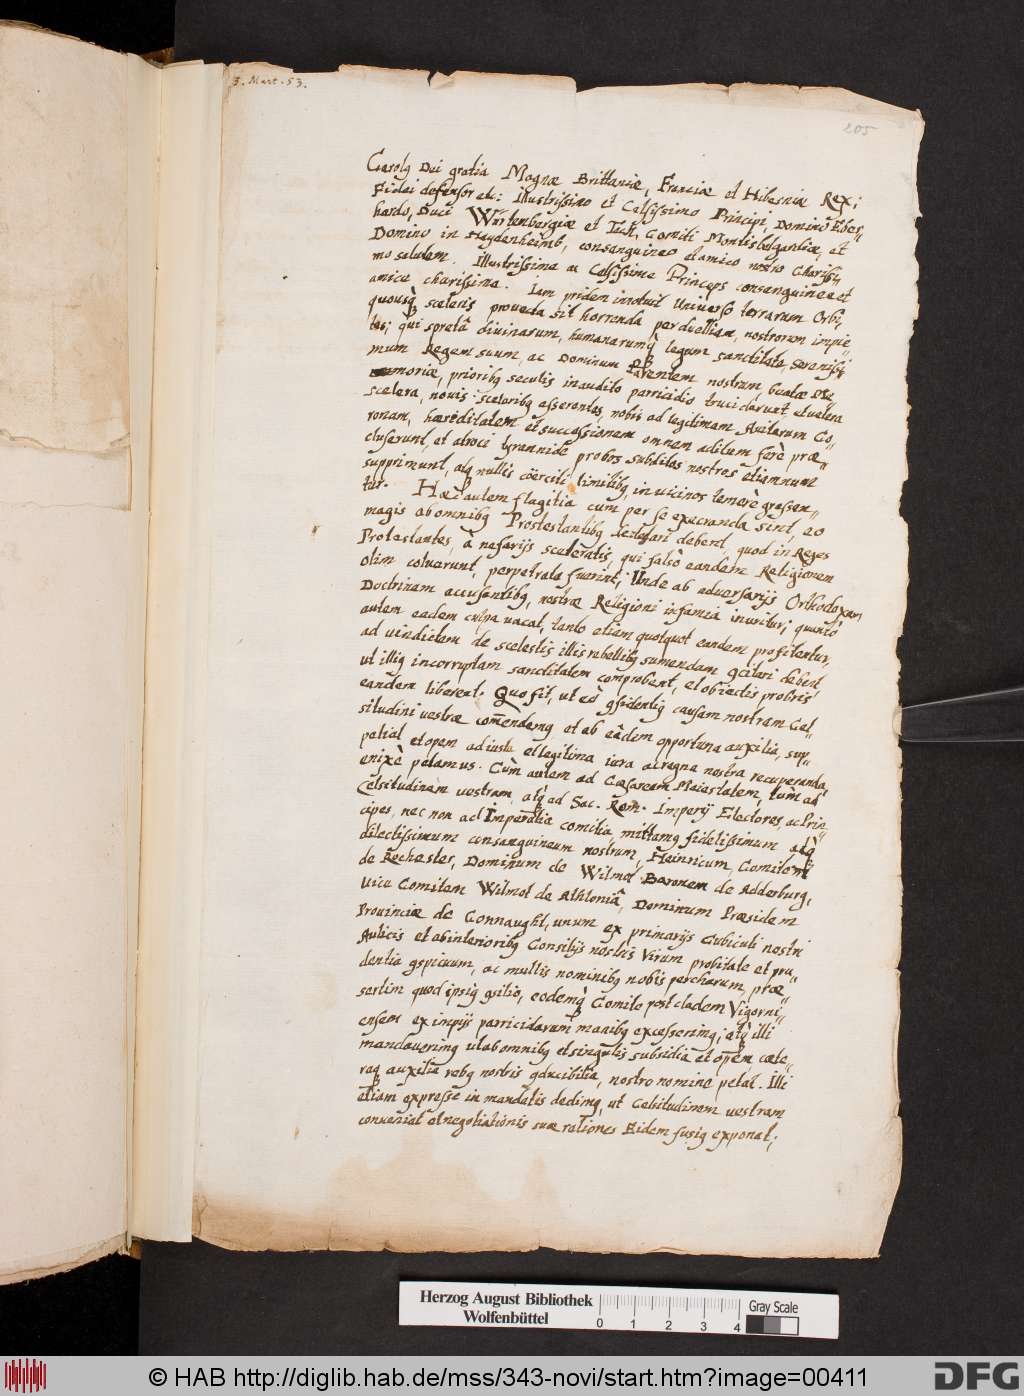 3. Mart. 53.
205
Carolg Dei gratia Magnæ Brittaniæ, Franciæ et Hiberniæ Rex;
Fidei defensor etc: Illustrissimo et Celsissimo Principi, Domino Eber„
hardo, Duci Würtenbergiæ et Teck, Comiti Montisbelgardiæ, et
Domino in Haydenheimb, consanguineo et amico nostro Charissi„
mo salutem. Illustrissime ac Celsissime Princeps consanguinee et
amice charissime. Iam pridem innotuit Universo terrarum Orbi,
quousq sceleris provecta sit horrenda perduellium, nostrorum impie„
tas; qui spretâ divinarum, humanarumq legum sanctitate, Serenissi„
mum Regem suum, ac Dominum Parentem nostrum, beatæ Me„
moriæ, prioribg seculis inaudito parricidio trucidarunt, et vetera
scelera, novis sceleribg asserentes, nobis ad legitimam Avitarum Co„
ronam, hæreditatem et successionem omnem aditum ferè præ„
cluserunt, et atroci tyrannide probos subditos nostros etiamnum
supprimunt, atq nullis cöerciti limitibg, in vicinos temerè grassen„
tur. Hæc autem flagitia cum per se execranda sint, eo
magis ab omnibg Prostestantibg detestari debent, quod in Reges
Protestantes, à nefarijs sceleratis, qui falsò eandem Religionem
olim coluerunt, perpetrata fuerint; Unde ab adversarijs Orthodoxam
Doctrinam accusantibg, nostræ Religioni infamia inuritur; quanto
autem eadem culpa vacat, tanto etiam quotquot eandem profitentur,
ad vindictam de scelestis illis rebellibg sumendam gcitari debent,
ut illig incorruptam sanctitatem comprobent, et obiectis probris
eandem liberent. Quo fit, ut eò gfidentig causam nostram Cel„
situdini vestræ com̅endemg et ab eâdem opportuna auxilia, sup„
petias et opem ad iusta et legitima iura ac regna nostra recuperanda,
enixè petamus. Cùm autem ad Cæsaream Maiestatem, tùm ad
Celsitudinem vestram, atq ad Sac. Rom. Imperij Electores, ac Prin„
cipes, nec non ad Imperalia comitia, mittamg fidelissimum atq
dilectissimum consanguineum nostrum, Heinricum, Comitem
de Rochester, Dominum de Wilmot Baronem de Adderburg,
Vice Comitem Wilmot de Athloniâ, Dominum Præsidem
Provinciæ de Connaught, unum ex primarijs Cubiculi nostri
Aulicis et ab interioribg Consilijs nostris Virum probitate et pru„
dentia gspicuum, ac multis nominibg nobis percharum, præ„
sertim quod ipsig gsilio, eodemq Comite post cladem Vigorni„
ensem ex impijs parricidarum manibg excesserimg; atq illi
mandaverimg ut ab omnibg et singulis subsidia et opem cæte„
raq auxilia rebg nostris gducibilia, nostro nomine petat. Illi
etiam expresse in mandatis dedimg, ut Celsitudinem vestram
conveniat et negotiationis suæ rationes Eidem fusig exponat;
Herzog August Bibliothek
Wolfenbüttel
0 1 2 3 4
Gray Scale
© HAB http://diglib.hab.de/mss/343-novi/start.htm?image=00411
DFG